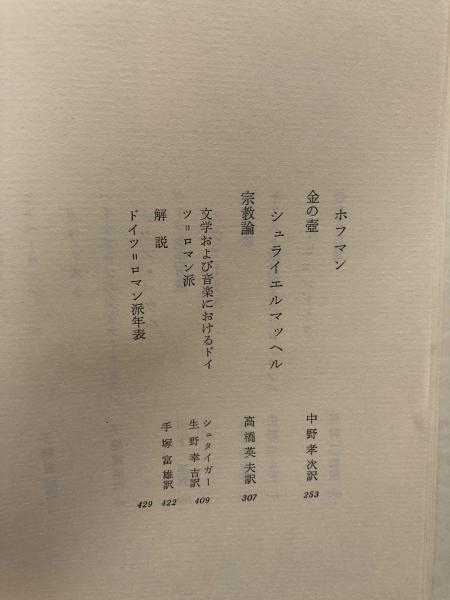 ホフマン
金の壺
中野孝次訳
253
シュライエルマッヘル
宗教論
高橋英夫訳
307
文学および音楽におけるドイ
ツ＝ロマン派
シュタイガー
生野幸吉訳
409
解説
手塚富雄訳
422
ドイツ＝ロマン派年表
429